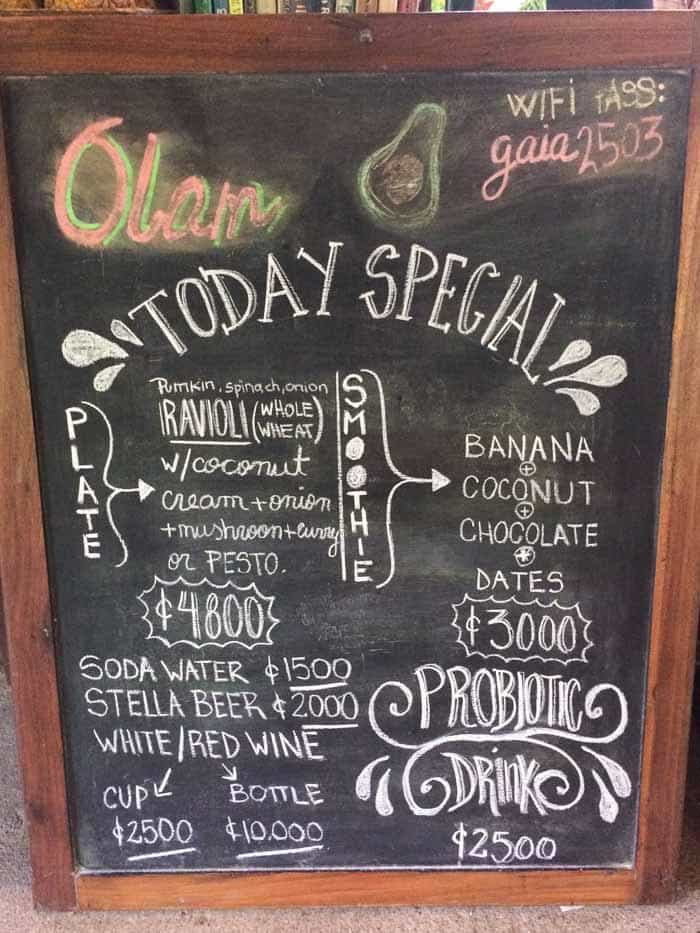 Olam
WIFI PASS:
gaia2503
TODAY SPECIAL
PLATE
Pumkin, spinach, onion
RAVIOLI (WHOLE WHEAT)
w/coconut
cream + onion
+ mushroon + curry
or PESTO.
¢4800
SMOOTHIE
BANANA
+
COCONUT
+
CHOCOLATE
+
DATES
¢3000
SODA WATER ¢1500
STELLA BEER ¢2.000
WHITE/RED WINE
CUP BOTTLE
¢2500 ¢10.000
PROBIOTIC
DRINK
¢2500